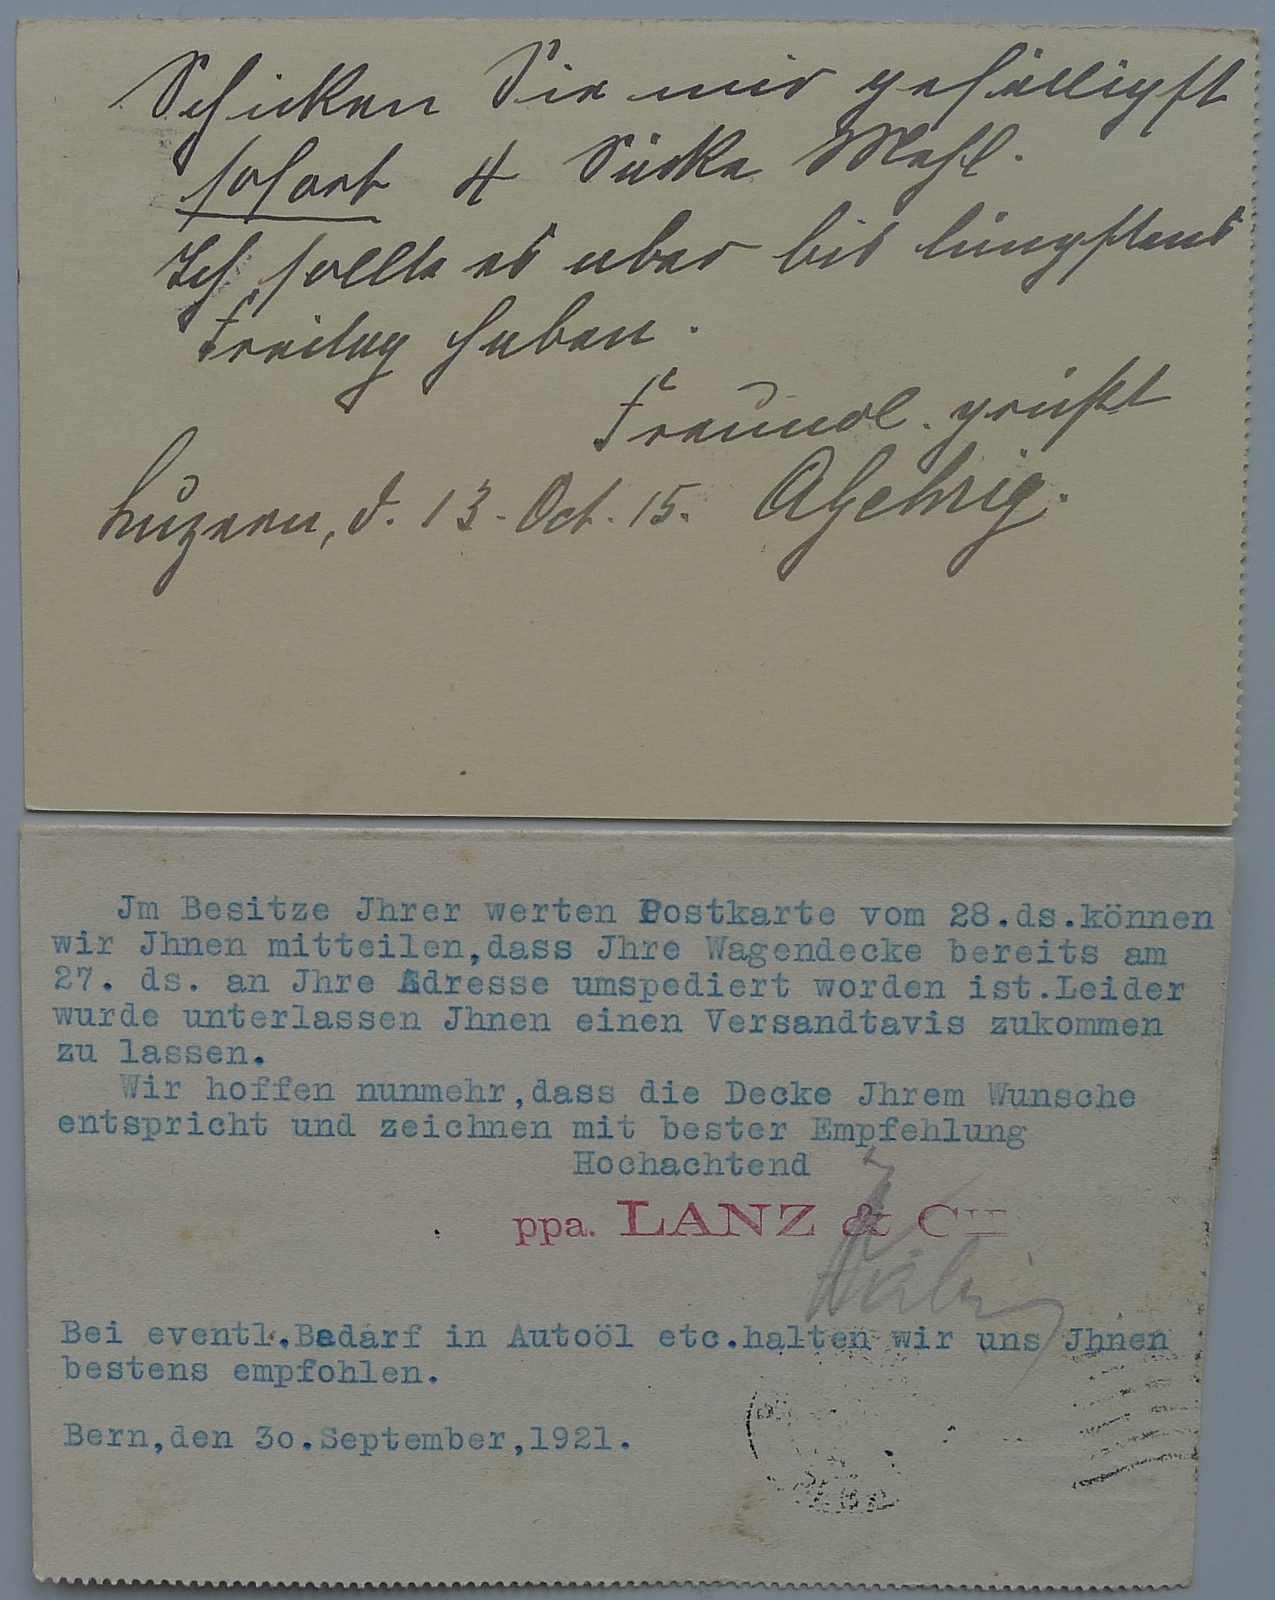 Schicken Sie mir gefälligst
sofort 4 Säcke Mehl.
Ich sollte es aber bis längstens
Freitag haben.
Freundl. grüßt
Luzern, d. 13. Oct. 15. A Gehrig.
Jm Besitze Jhrer werten Postkarte vom 28.ds.können
wir Jhnen mitteilen,dass Jhre Wagendecke bereits am
27. ds. an Jhre Adresse umspediert worden ist.Leider
wurde unterlassen Jhnen einen Versandtavis zukommen
zu lassen.
Wir hoffen nunmehr,dass die Decke Jhrem Wunsche
entspricht und zeichnen mit bester Empfehlung
Hochachtend
ppa. LANZ & CIE
Bei eventl.Bedarf in Autoöl etc.halten wir uns Jhnen
bestens empfohlen.
Bern,den 3o.September,1921.